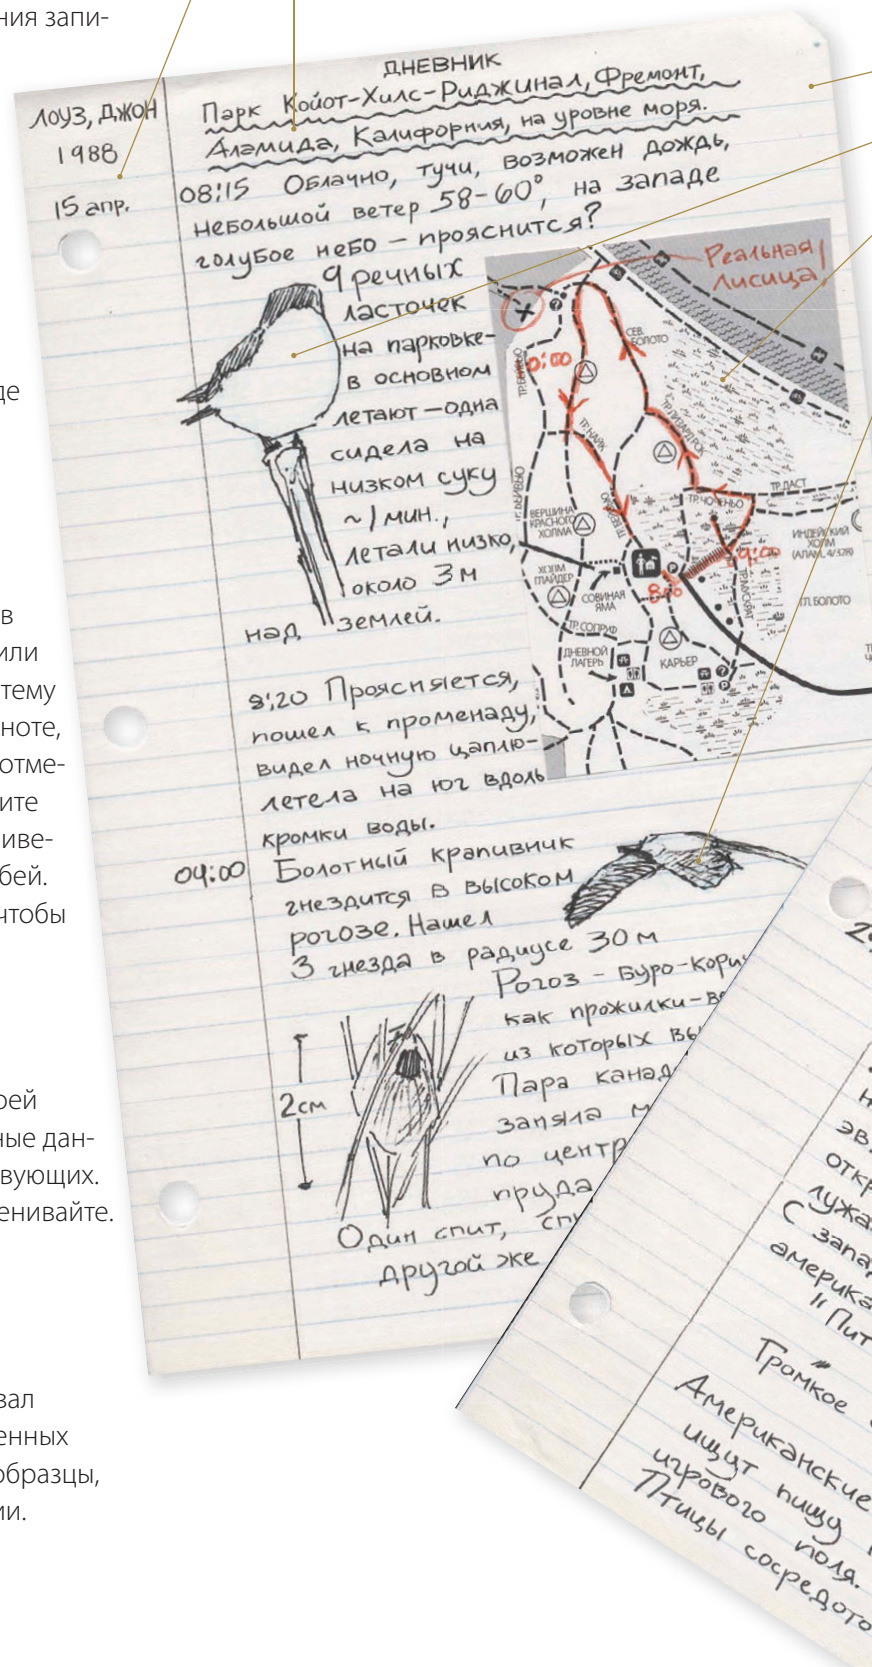 ния запи-
де
в
или
тему
ноте,
отме-
ите
иве-
бей.
чтобы
рей
ные дан-
вующих.
енивайте.
вал
енных
образцы,
ии.
ДНЕВНИК
ЛОУЗ, ДЖОН
1988
15 апр.
Парк Койот-Хилс-Риджинал, Фремонт,
Аламида, Калифорния, на уровне моря.
08:15 Облачно, тучи, возможен дождь,
небольшой ветер 58-60°, на западе
голубое небо – прояснится?
9 речных
ласточек
на парковке-
в основном
летают – одна
сидела на
низком суку
~1 мин.,
летали низко,
около 3 м
над землей.
8:20 Проясняется,
пошел к променаду,
видел ночную цаплю-
летела на юг вдоль
кромки воды.
09:00 Болотный крапивник
гнездится в высоком
рогозе. Нашел
3 гнезда в радиусе 30 м
Рогоз - буро-кори
как прожилки-в
из которых вы
Пара канад
заняла м
по центр
пруда
Один спит, сп
другой же
2 см
Реальная
лисица!
СЕВ.
БОЛОТО
ТР. БЕЙВЬЮ
0:00
ТР. НАЙК
ТР. ЛИЗАРД РОК
ТР. БЕЙВЬЮ
ТР. ДАСТ
ТР. ЧОЧЕНЬО
ВЕРШИНА
КРАСНОГО
ХОЛМА
ИНДЕЙСКИЙ
ХОЛМ
(АЛАМ. 4/328)
9:00
ХОЛМ
ГЛАЙДЕР
СОВИНАЯ
ЯМА
8:00
ТР. МУСКРАТ
ГЛ. БОЛОТО
ТР. СОПРИФ
ДНЕВНОЙ
ЛАГЕРЬ
КАРЬЕР
29
н
эв
откр
лужа
С запад
америка
"Пит
Громкое
Американские
ищут пищу
игрового поля.
Птицы сосредото